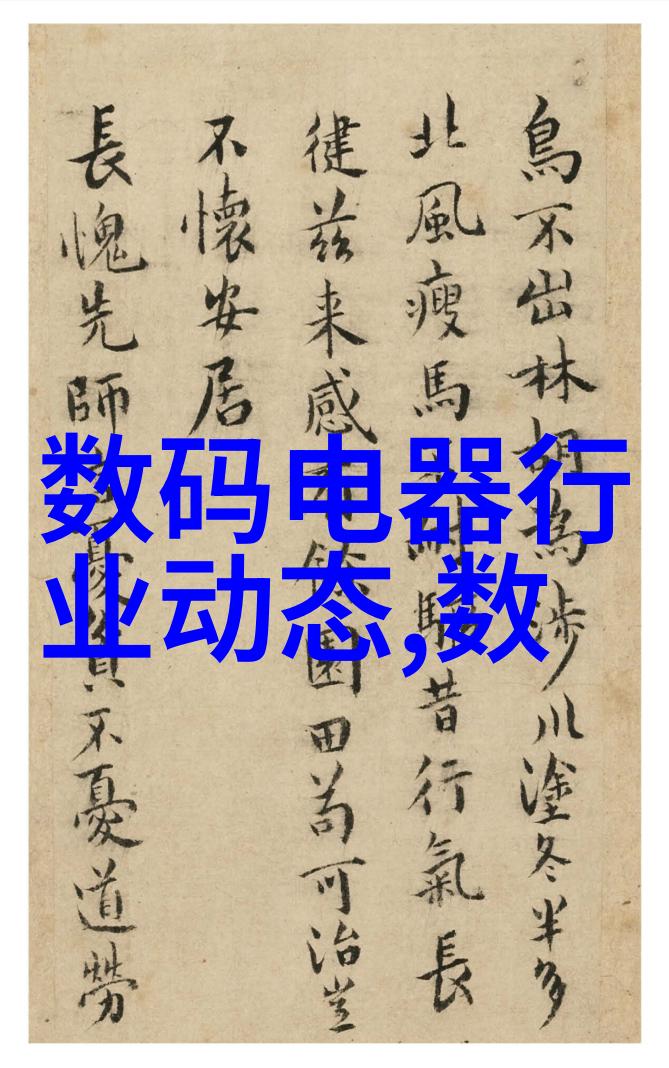 鳥不出林胡為涉川塗冬半多
北風瘦馬耐昔行氣長
徤茲来感有餘園田苟可治豈
不懷安居
長愧先師憂貧不憂道勞
数码电器行
业动态,数